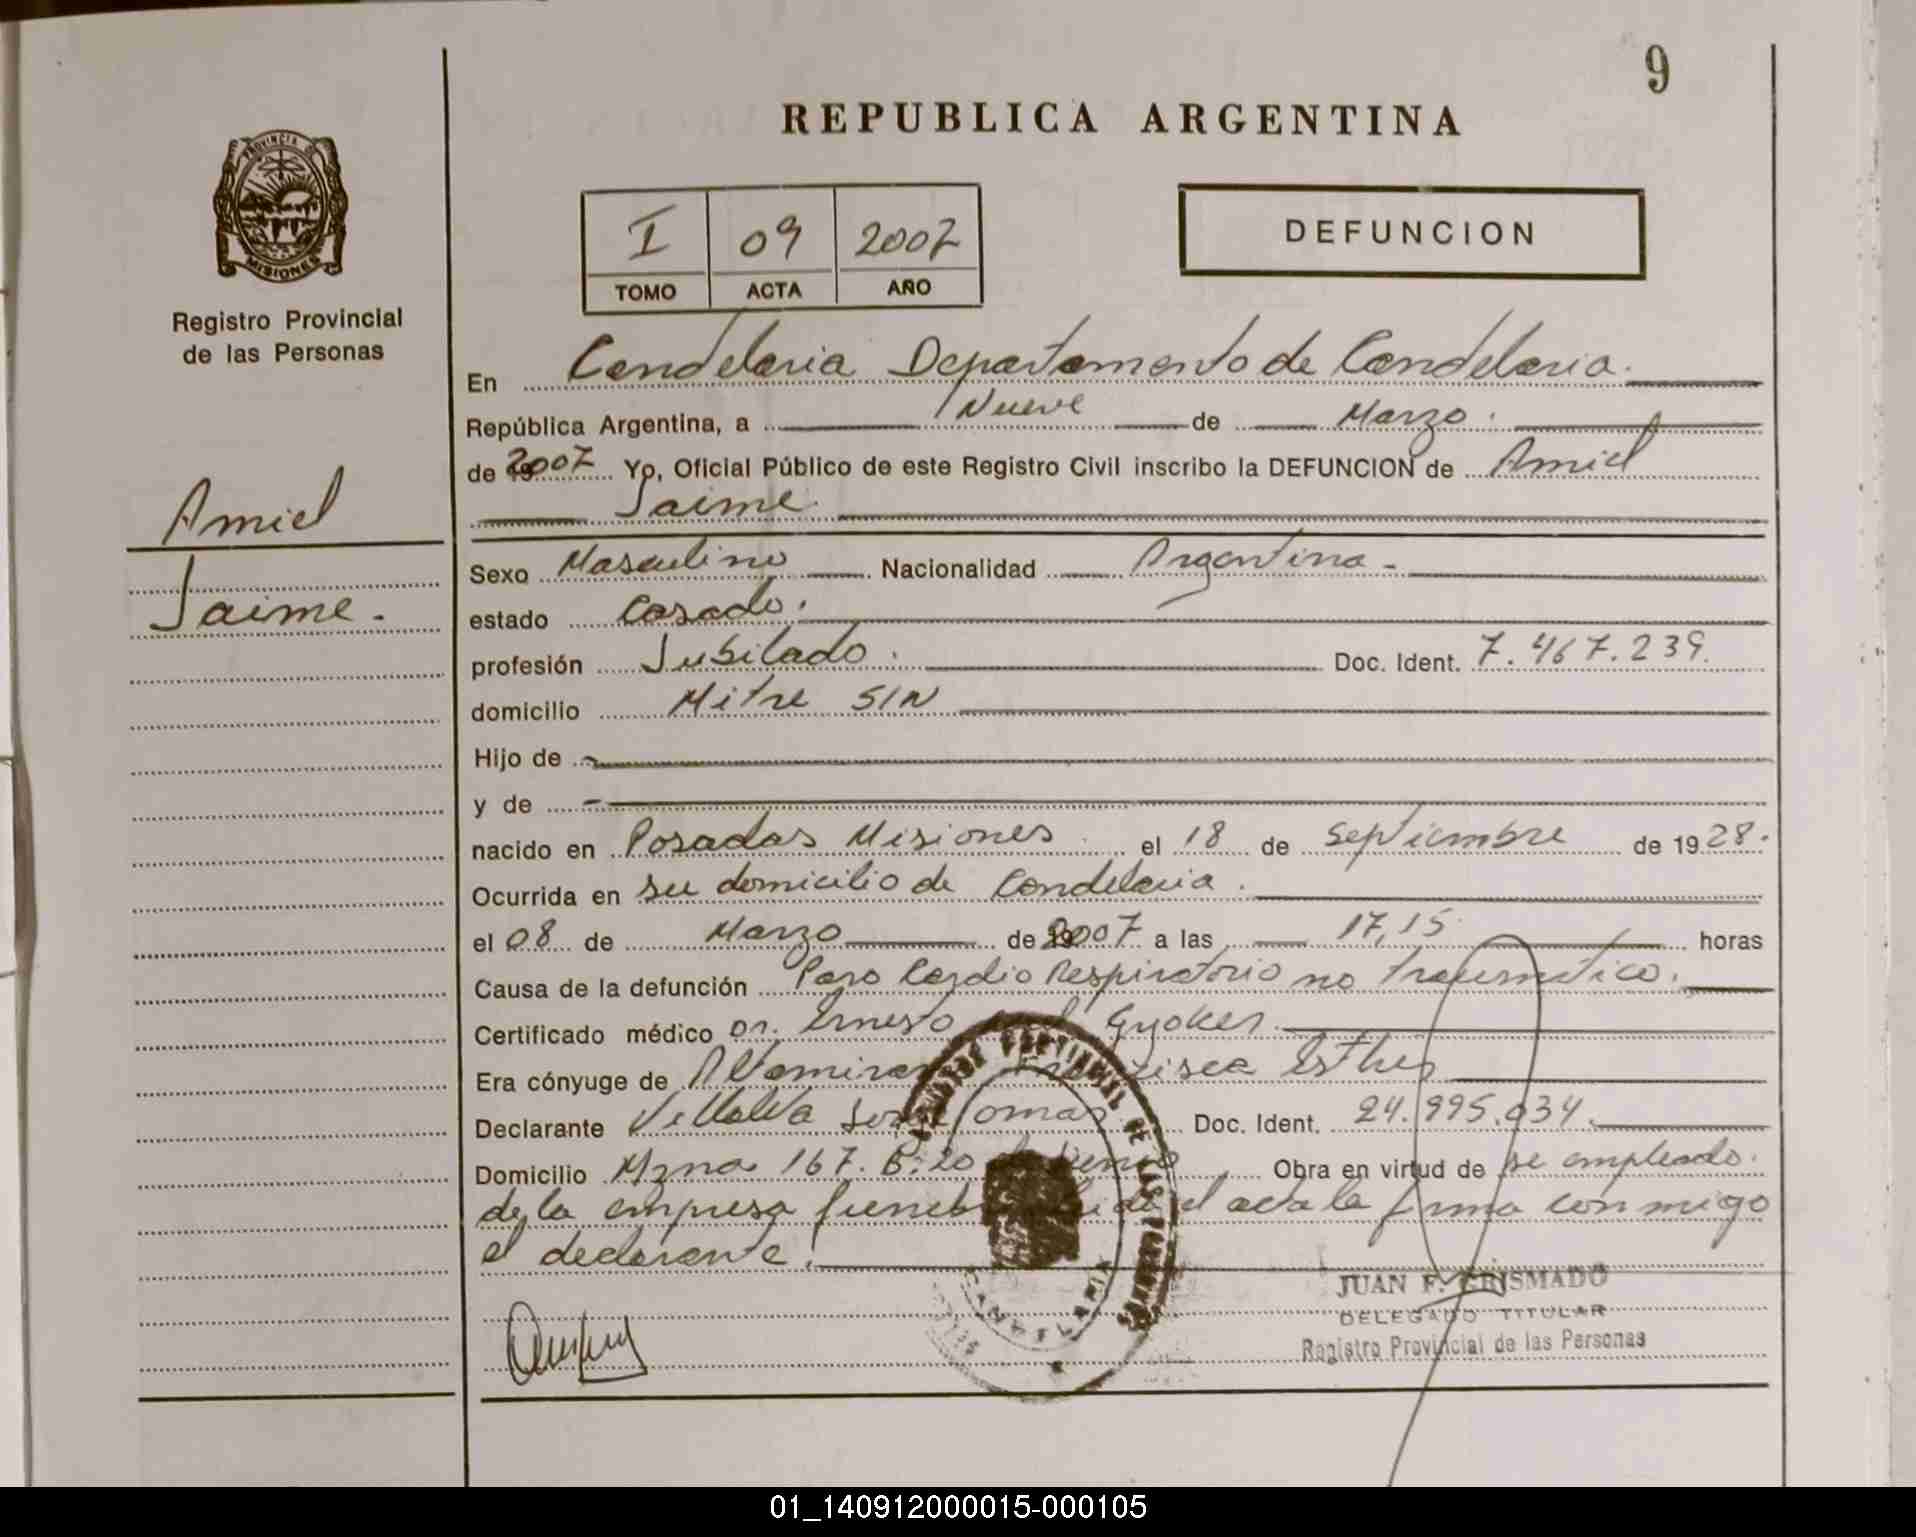 9
REPUBLICA ARGENTINA
PROVINCIA DE
MISIONES
Registro Provincial
de las Personas
I 09 2007
TOMO ACTA AÑO
DEFUNCION
Amiel
Jaime.
En Candelaria Departamento de Candelaria.
República Argentina, a Nueve de Marzo.
de 2007 Yo, Oficial Público de este Registro Civil inscribo la DEFUNCION de Amiel
Jaime
Sexo Masculino Nacionalidad Argentina.
estado Casado.
profesión Jubilado. Doc. Ident. 7.467.239.
domicilio Mitre S/N
Hijo de
y de
nacido en Posadas Misiones el 18 de Septiembre de 1928.
Ocurrida en su domicilio de Candelaria.
el 08 de Marzo de 2007 a las 17,15 horas
Causa de la defunción Paro Cardio Respiratorio no traumático.
Certificado médico Dr. Ernesto Gyoker.
Era cónyuge de Esther
Declarante Villalva Tomas Doc. Ident. 24.995.034.
Domicilio Mzna 167. Obra en virtud de se empleado.
de la empresa el acta la firma conmigo
el declarante.
CANDELARIA
JUAN F. GRISMADO
DELEGADO TITULAR
Registro Provincial de las Personas
01_140912000015-000105